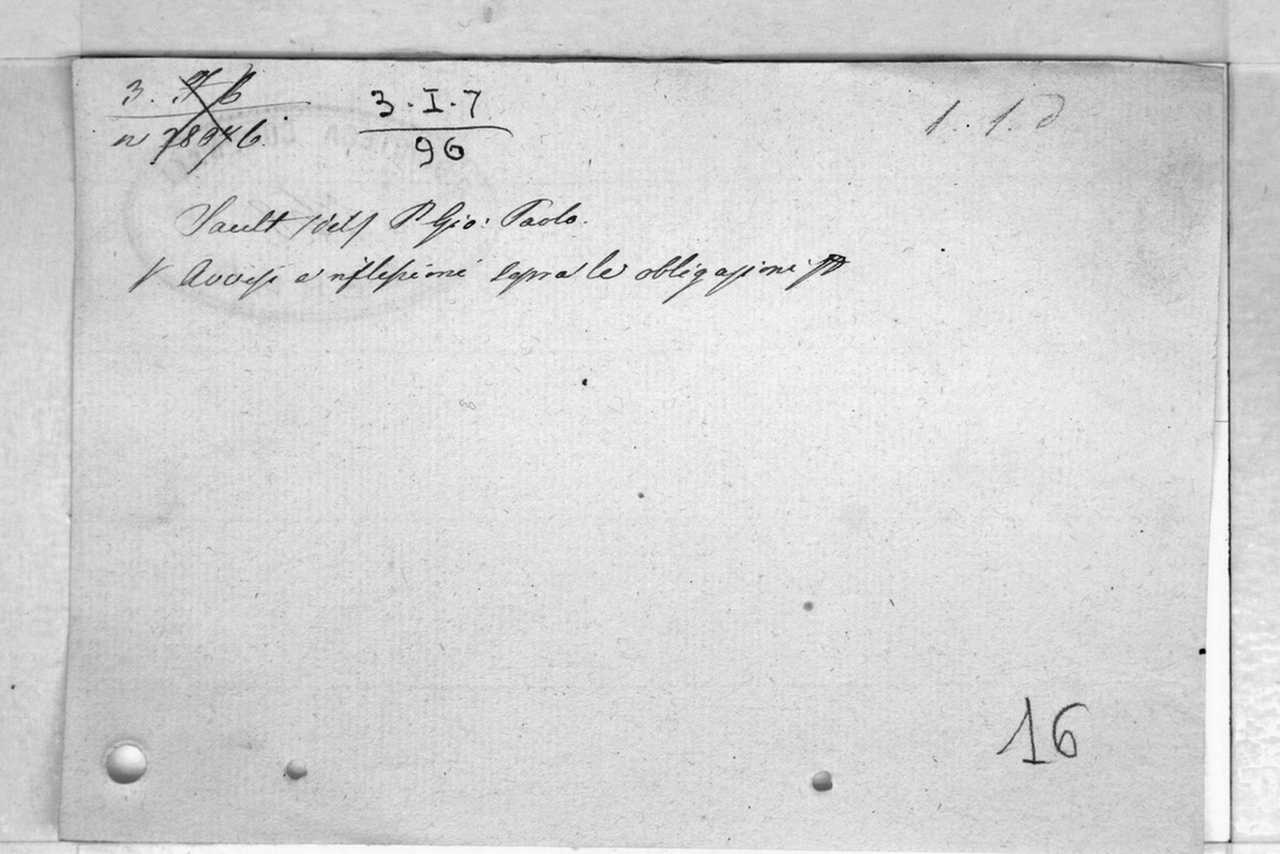 3.
3·I·7
96
1. 1. d
Sault /del/ P. Gio: Paolo.
Avvisi e riflessioni sopra le obligazioni
16